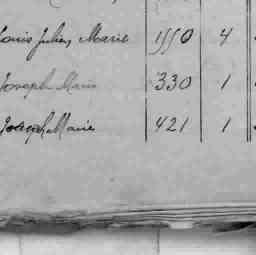 Louis Julien Marie 1550 4
Joseph Marie 330 1
Joseph Marie 421 1